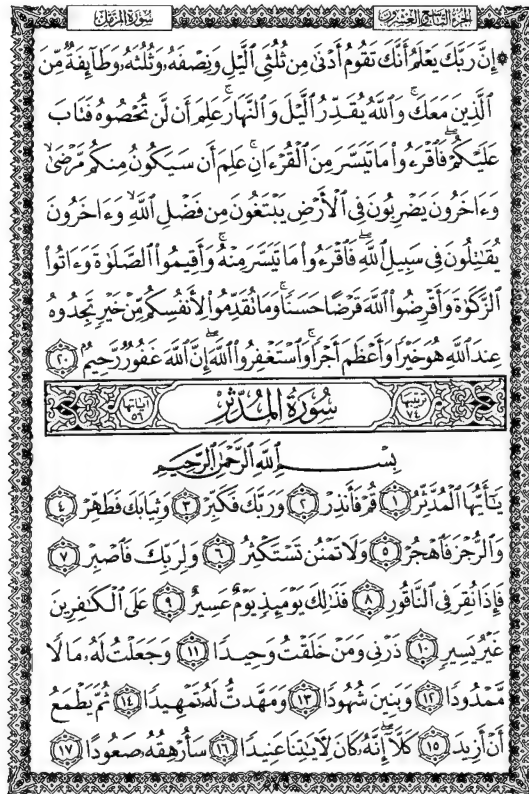 سُورَةُ المُزَّمِّل
الجزء التاسع والعشرون
۞ إِنَّ رَبَّكَ يَعْلَمُ أَنَّكَ تَقُومُ أَدْنَىٰ مِن ثُلُثَيِ ٱلَّيْلِ وَنِصْفَهُۥ وَثُلُثَهُۥ وَطَآئِفَةٌ مِّنَ
ٱلَّذِينَ مَعَكَ ۚ وَٱللَّهُ يُقَدِّرُ ٱلَّيْلَ وَٱلنَّهَارَ ۚ عَلِمَ أَن لَّن تُحْصُوهُ فَتَابَ
عَلَيْكُمْ ۖ فَٱقْرَءُوا۟ مَا تَيَسَّرَ مِنَ ٱلْقُرْءَانِ ۚ عَلِمَ أَن سَيَكُونُ مِنكُم مَّرْضَىٰ ۙ
وَءَاخَرُونَ يَضْرِبُونَ فِى ٱلْأَرْضِ يَبْتَغُونَ مِن فَضْلِ ٱللَّهِ ۙ وَءَاخَرُونَ
يُقَـٰتِلُونَ فِى سَبِيلِ ٱللَّهِ ۖ فَٱقْرَءُوا۟ مَا تَيَسَّرَ مِنْهُ ۚ وَأَقِيمُوا۟ ٱلصَّلَوٰةَ وَءَاتُوا۟
ٱلزَّكَوٰةَ وَأَقْرِضُوا۟ ٱللَّهَ قَرْضًا حَسَنًا ۚ وَمَا تُقَدِّمُوا۟ لِأَنفُسِكُم مِّنْ خَيْرٍ تَجِدُوهُ
عِندَ ٱللَّهِ هُوَ خَيْرًا وَأَعْظَمَ أَجْرًا ۚ وَٱسْتَغْفِرُوا۟ ٱللَّهَ ۖ إِنَّ ٱللَّهَ غَفُورٌ رَّحِيمٌ ٢٠
ترتيبها ٧٤ سُورَةُ المُدَّثِّرِ آياتها ٥٦
بِسْمِ ٱللَّهِ ٱلرَّحْمَـٰنِ ٱلرَّحِيمِ
يَـٰٓأَيُّهَا ٱلْمُدَّثِّرُ ١ قُمْ فَأَنذِرْ ٢ وَرَبَّكَ فَكَبِّرْ ٣ وَثِيَابَكَ فَطَهِّرْ ٤
وَٱلرُّجْزَ فَٱهْجُرْ ٥ وَلَا تَمْنُن تَسْتَكْثِرُ ٦ وَلِرَبِّكَ فَٱصْبِرْ ٧
فَإِذَا نُقِرَ فِى ٱلنَّاقُورِ ٨ فَذَٰلِكَ يَوْمَئِذٍ يَوْمٌ عَسِيرٌ ٩ عَلَى ٱلْكَـٰفِرِينَ
غَيْرُ يَسِيرٍ ١٠ ذَرْنِى وَمَنْ خَلَقْتُ وَحِيدًا ١١ وَجَعَلْتُ لَهُۥ مَالًا
مَّمْدُودًا ١٢ وَبَنِينَ شُهُودًا ١٣ وَمَهَّدتُّ لَهُۥ تَمْهِيدًا ١٤ ثُمَّ يَطْمَعُ
أَنْ أَزِيدَ ١٥ كَلَّآ ۖ إِنَّهُۥ كَانَ لِـَٔايَـٰتِنَا عَنِيدًا ١٦ سَأُرْهِقُهُۥ صَعُودًا ١٧